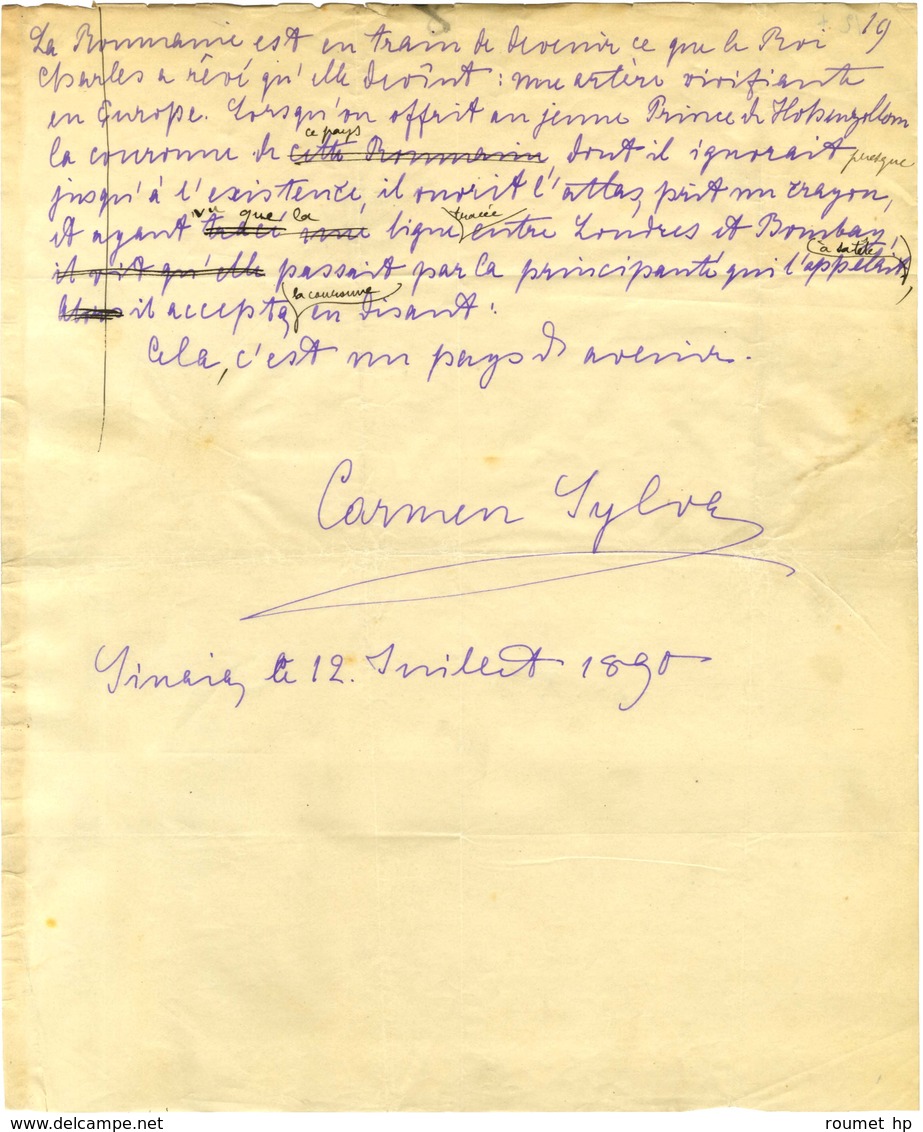 19
La Roumanie est en train de devenir ce que le Roi
Charles a rêvé qu'elle devînt : une artère vivifiante
en Europe. Lorsqu'on offrit au jeune Prince de Hohenzollern
la couronne de ce pays cette Roumanie, dont il ignorait presque
jusqu'à l'existence, il ouvrit l'atlas, prit un crayon,
et ayant vu que la tracé une ligne tracée entre Londres et Bombay,
il vit qu'elle passait par la principauté qui l'appelait à sa tête,
Alors il accepta la couronne en disant :
Cela, c'est un pays d'avenir.
Carmen Sylva
Sinaia, le 12. Juillet 1890
roumet hp